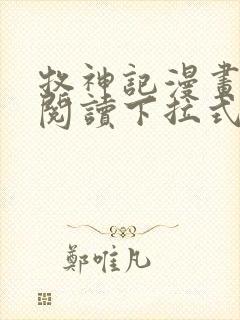 牧神記漫畫
閱讀下拉式
鄭唯凡